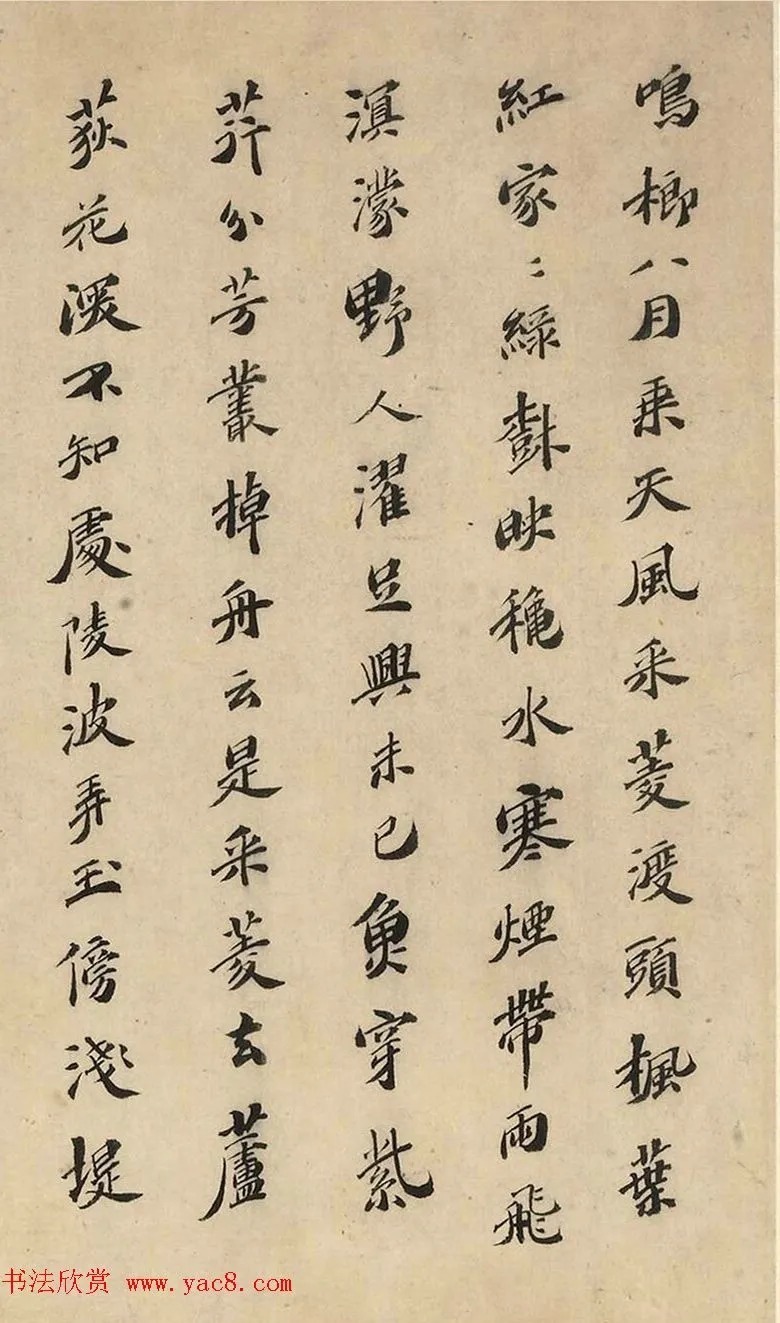 鳴榔八月乗天風采菱渡頭楓葉
紅家〻綠尌映穐水寒煙帶雨飛
溟濛野人濯足興未已魚穿紫
荇分芳叢棹舟云是采菱去蘆
荻花深不知處陵波弄玉傍淺堤
书法欣赏 www.yac8.com